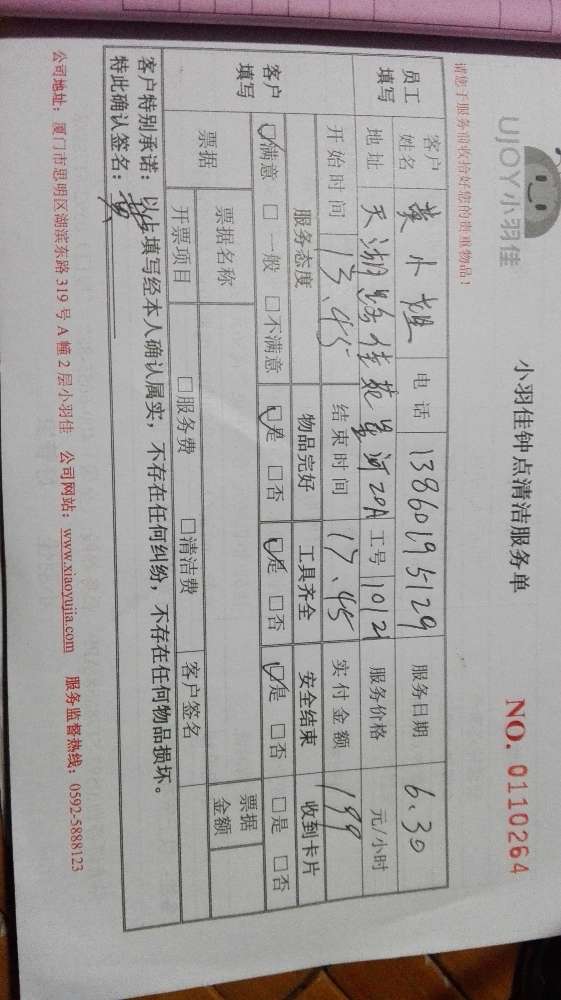 UJOY小羽佳
小羽佳钟点清洁服务单
NO. 0110264
请您于服务前收拾好您的贵重物品！
员工填写
客户姓名 黄小姐 电话 13860195129 服务日期 6.30
地址 天湖路佳苑星河20A 工号 10121 服务价格 元/小时
开始时间 13.45 结束时间 17.45 实付金额 199
客户填写
服务态度 物品完好 工具齐全 安全结束 收到卡片
☑满意 □一般 □不满意 ☑是 □否 ☑是 □否 ☑是 □否 □是 □否
票据 票据名称 票据金额
开票项目 □服务费 □清洁费 客户签名
客户特别承诺：以上填写经本人确认属实，不存在任何纠纷，不存在任何物品损坏。
特此确认签名：黄
公司地址：厦门市思明区湖滨东路 319 号 A 幢 2 层小羽佳 公司网站：www.xiaoyujia.com 服务监督热线：0592-5888123